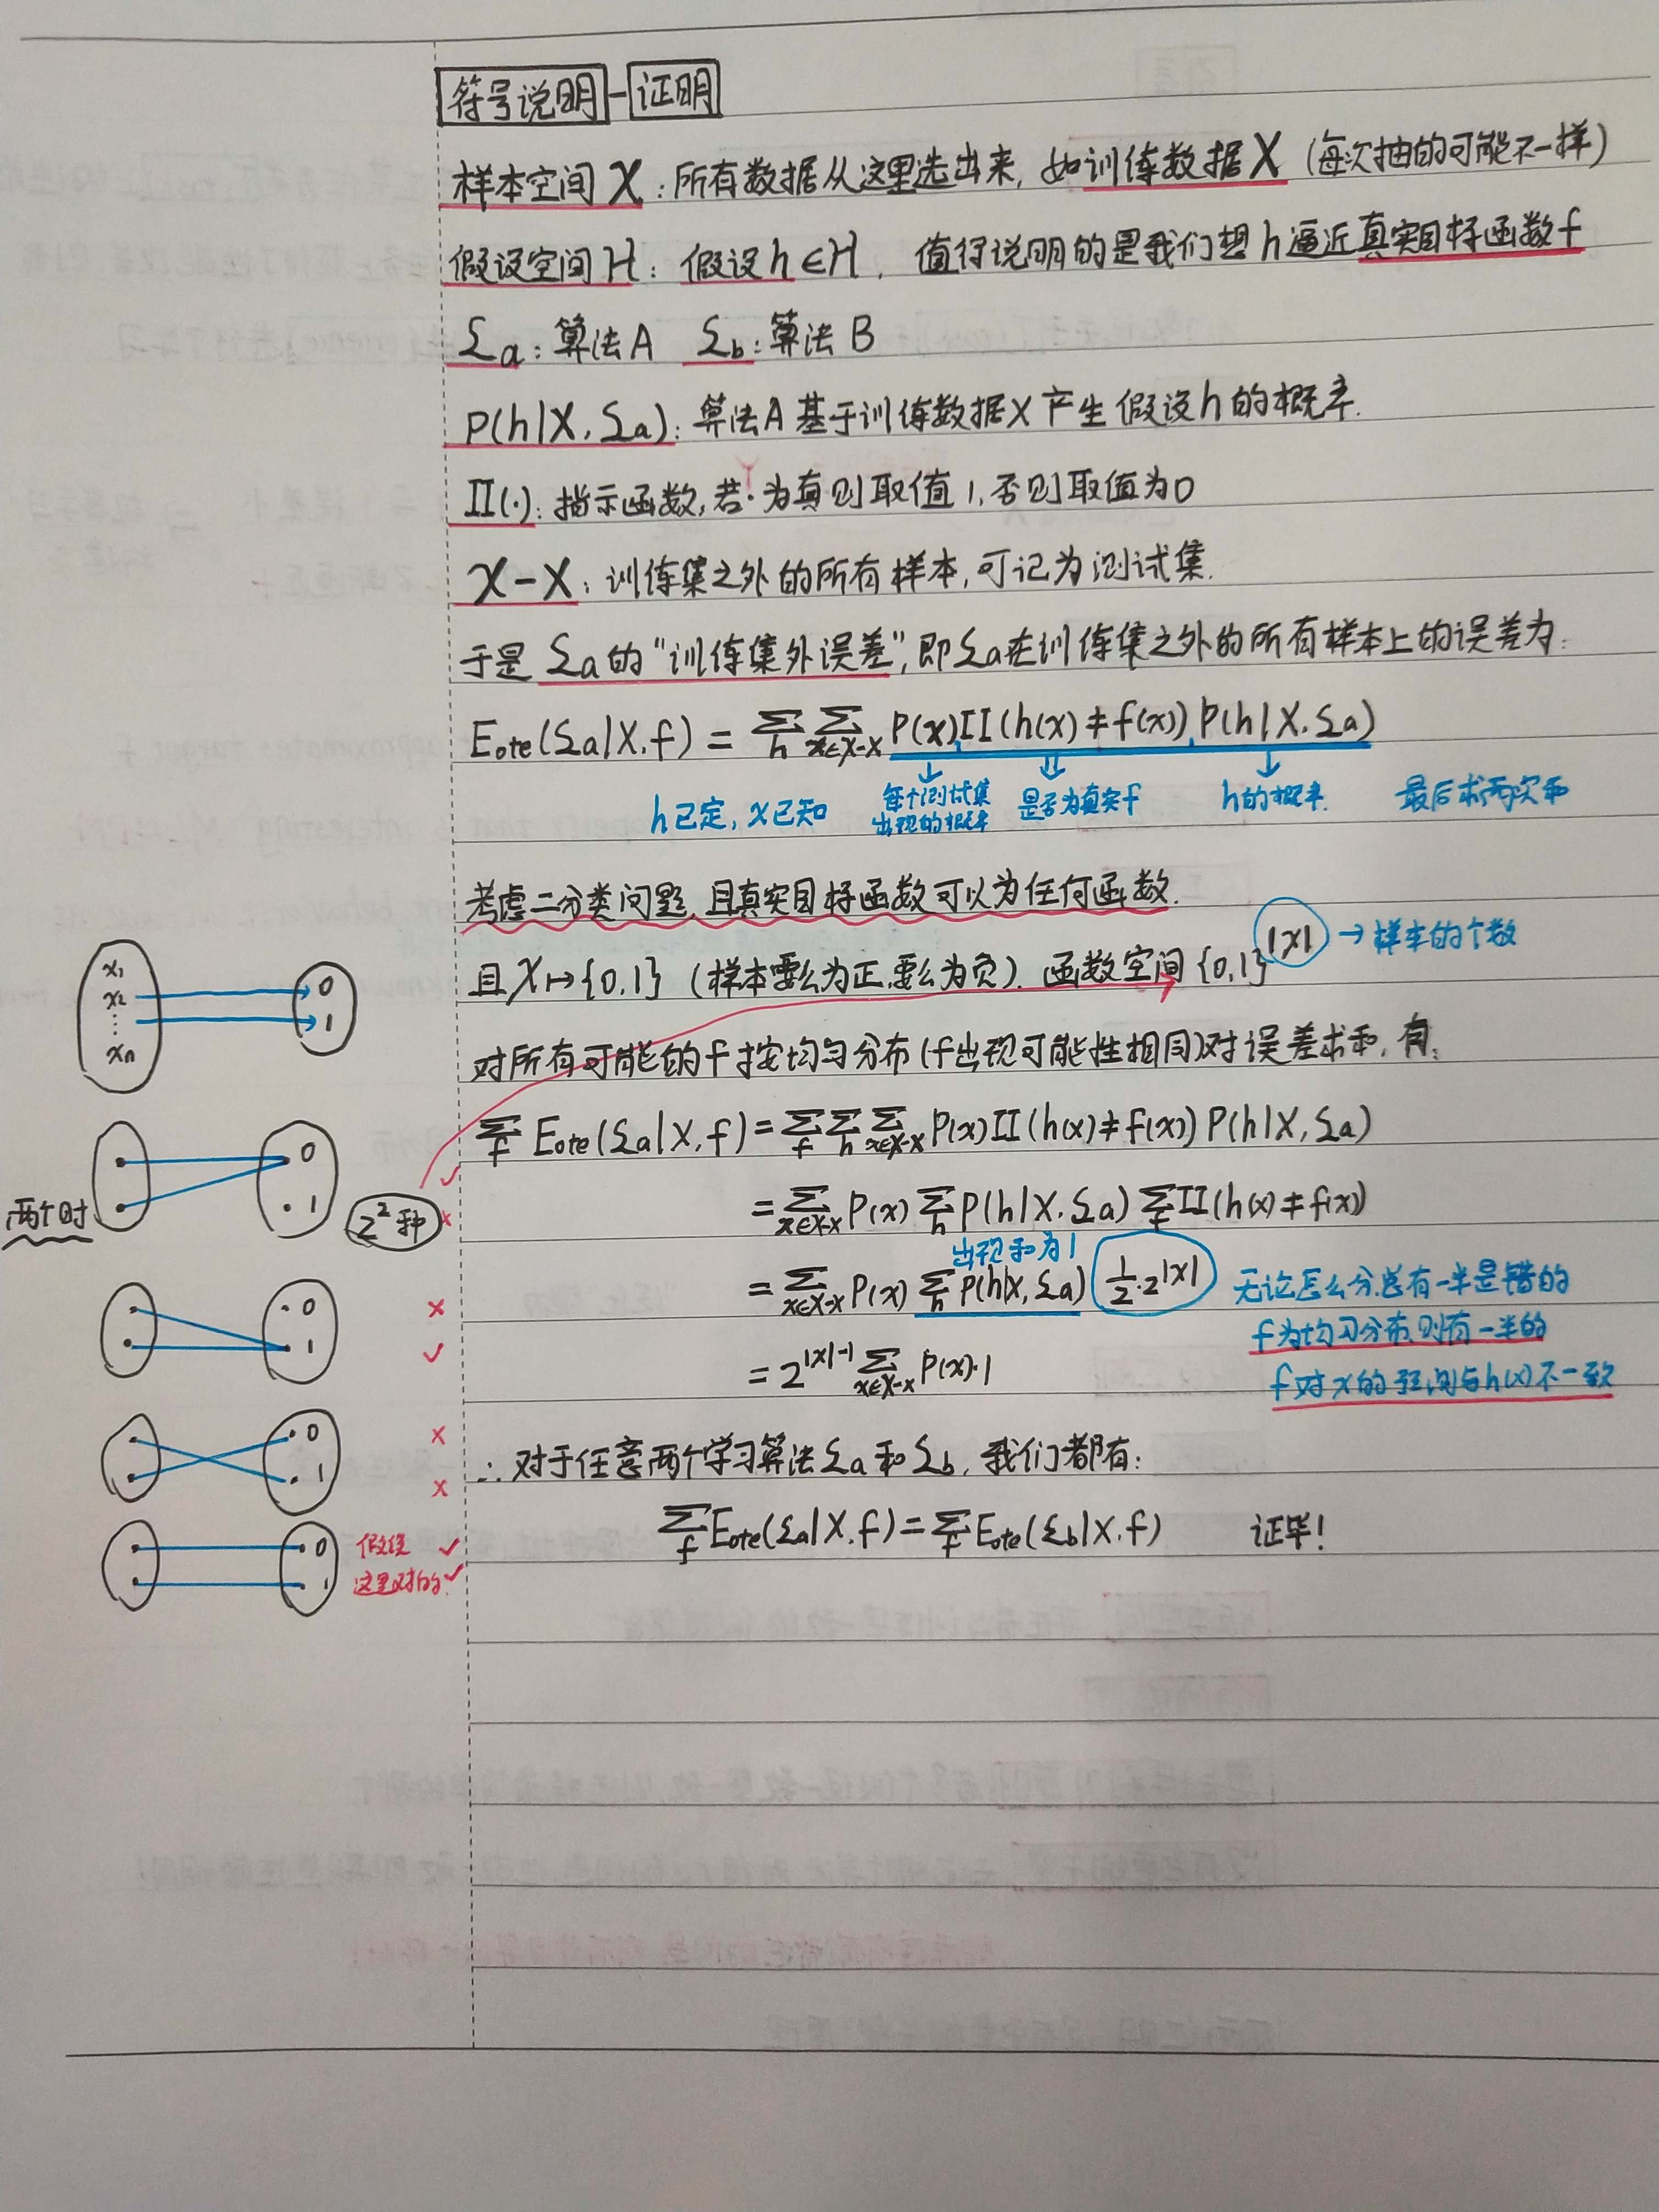 符号说明-证明
样本空间 X:所有数据从这里选出来, 如训练数据X (每次抽的可能不一样)
假设空间H: 假设h∈H, 值得说明的是我们想h逼近真实目标函数f
Σa:算法A Σb:算法B
P(h|X,Σa):算法A基于训练数据X产生假设h的概率.
II(·):指示函数,若·为真则取值1,否则取值为0
X-X:训练集之外的所有样本,可记为测试集.
于是 Σa的“训练集外误差”,即Σa在训练集之外的所有样本上的误差为:
Eote(Σa|X,f) = Σh Σx∈X-X P(x)II(h(x)≠f(x)) P(h|X,Σa)
h已定, x已知 每个测试集出现的概率 是否为真实f h的概率. 最后求两次和
考虑二分类问题,且真实目标函数可以为任何函数.
且X↦{0,1} (样本要么为正,要么为负). 函数空间{0,1}^|X| → 样本的个数
对所有可能的f按均匀分布(f出现可能性相同)对误差求和, 有:
Σf Eote(Σa|X,f) = Σf Σh Σx∈X-X P(x)II(h(x)≠f(x)) P(h|X,Σa)
= Σx∈X-X P(x) Σh P(h|X,Σa) Σf II(h(x)≠f(x))
出现和为1
= Σx∈X-X P(x) Σh P(h|X,Σa) 1/2·2^|X| 无论怎么分总有一半是错的
f为均匀分布,则有一半的
= 2^|X|-1 Σx∈X-X P(x)·1
f对x的预测与h(x)不一致
∴对于任意两个学习算法Σa和Σb, 我们都有:
Σf Eote(Σa|X,f) = Σf Eote(Σb|X,f) 证毕!
x₁
x₂
⋮
xn
0
1
两个时
0
1
2²种
✓
×
0
1
×
✓
0
1
×
×
0
1
假设 ✓
这里对的 ✓